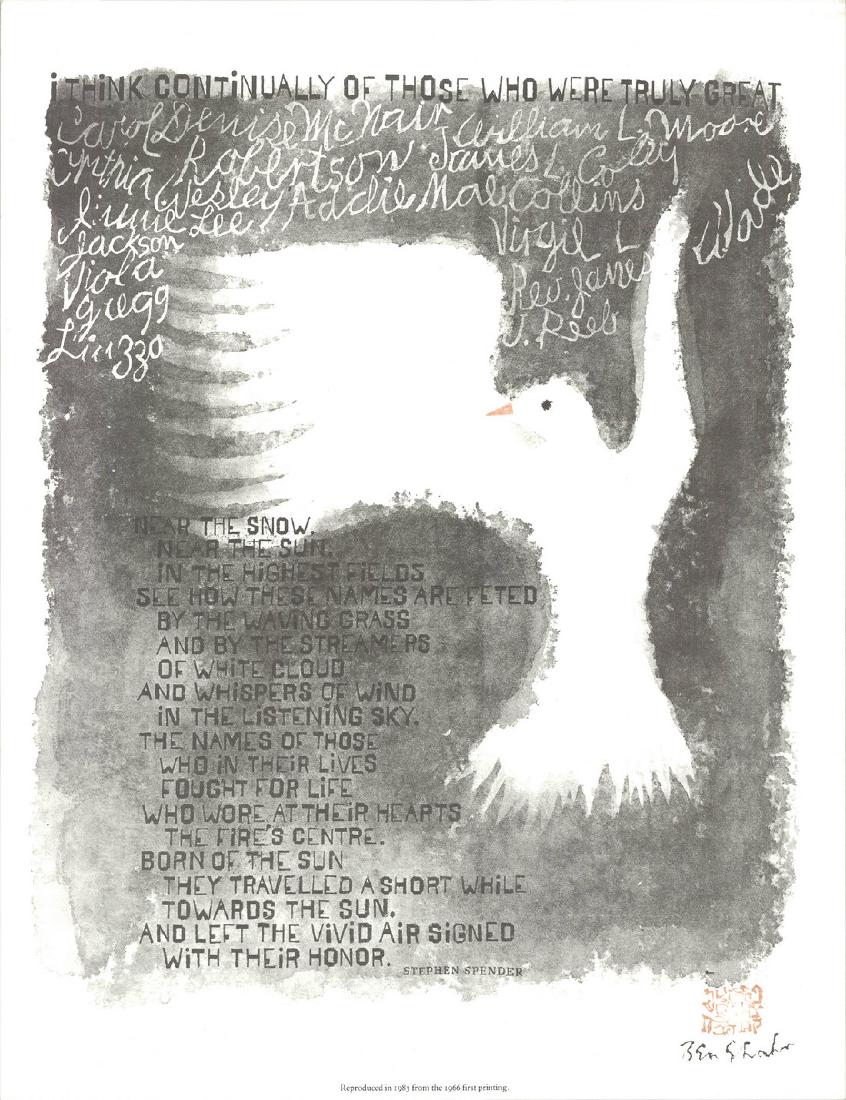 i THiNK CONTiNUALLY OF THOSE WHO WERE TRULY GREAT
Carol Denise McNair William L. Moore
Cynthia Robertson James L. Coley
Wesley Addie Mae Collins
Jimmie Lee
Jackson
Virgil L Wade
Viola
gregg
Liuzzo
Rev. James
J. Reeb
NEAR THE SNOW,
NEAR THE SUN,
iN THE HiGHEST FiELDS
SEE HOW THESE NAMES ARE FETED
BY THE WAViNG GRASS
AND BY THE STREAMERS
OF WHiTE CLOUD
AND WHiSPERS OF WiND
iN THE LiSTENiNG SKY.
THE NAMES OF THOSE
WHO iN THEiR LiVES
FOUGHT FOR LiFE
WHO WORE AT THEiR HEARTS
THE FiRE'S CENTRE.
BORN OF THE SUN
THEY TRAVELLED A SHORT WHiLE
TOWARDS THE SUN,
AND LEFT THE ViViD AiR SiGNED
WiTH THEiR HONOR.
STEPHEN SPENDER
Ben Shahn
Reproduced in 1983 from the 1966 first printing.